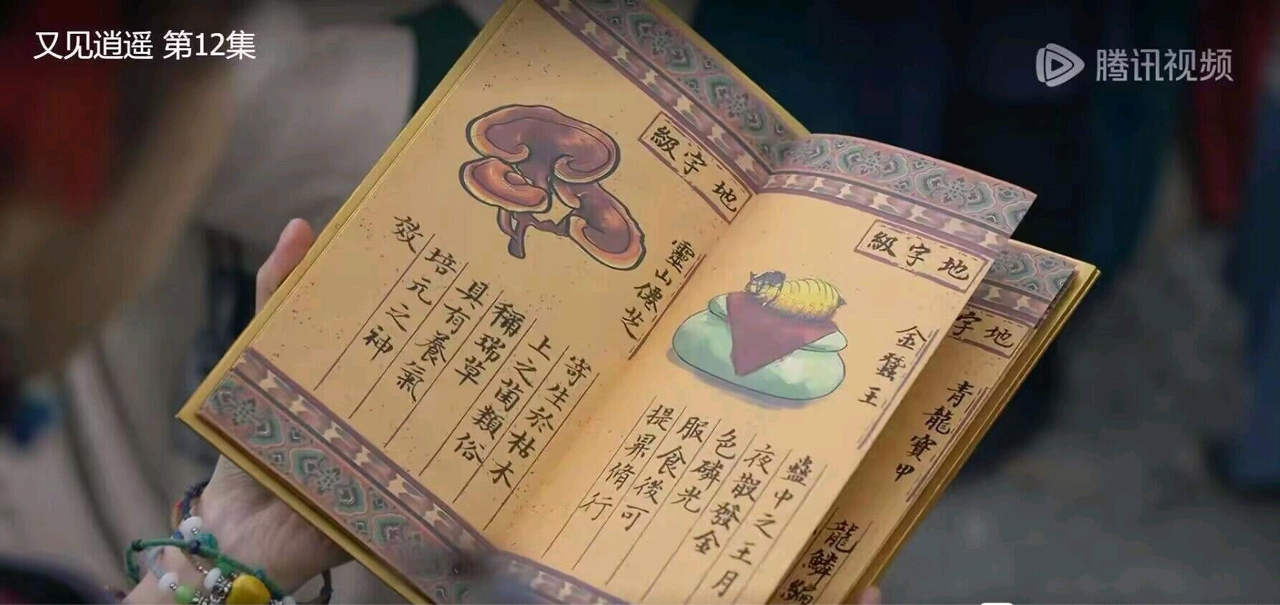 又见逍遥 第12集
腾讯视频
地字級
靈山僊芝
寄生於枯木
上之菌類俗
稱瑞草
具有養氣
培元之神
效
地字級
金蠶王
蠱中之王月
夜散發金
色磷光
服食後可
提昇脩行
地字
青龍寶甲
龍鱗編